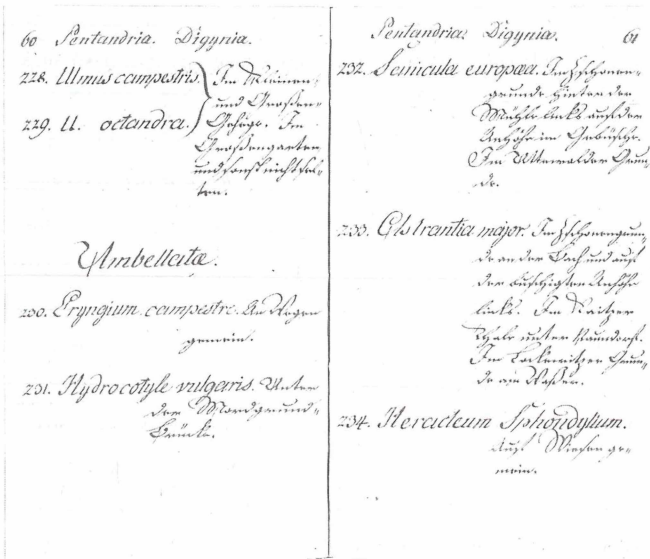 60 Pentandria. Digynia.
228. Ulmus campestris. Im kleinen
und Großen-
229. U. octandra. Gehege. Im
Großengarten
und sonst nicht sel-
ten.
Umbellatæ.
230. Eryngium campestre. An Wegen
gemein.
231. Hydrocotyle vulgaris. Unter
der Mordgrund-
Brücke.
Pentandria. Digynia. 61
232. Sanicula europæa. Im Zschonen-
grunde hinter der
Mühle links auf der
Anhöhe im Gebüsche.
Im Uttewalder Grun-
de.
233. Astrantia major. Im Zschonengrun-
de an der Bach und auf
der buschigten Anhöhe
links. Im
unter Naundorf.
Im Lockwitzer Grun-
de am Waßer.
234. Heracleum Sphondylium.
Auf Wiesen ge-
mein.